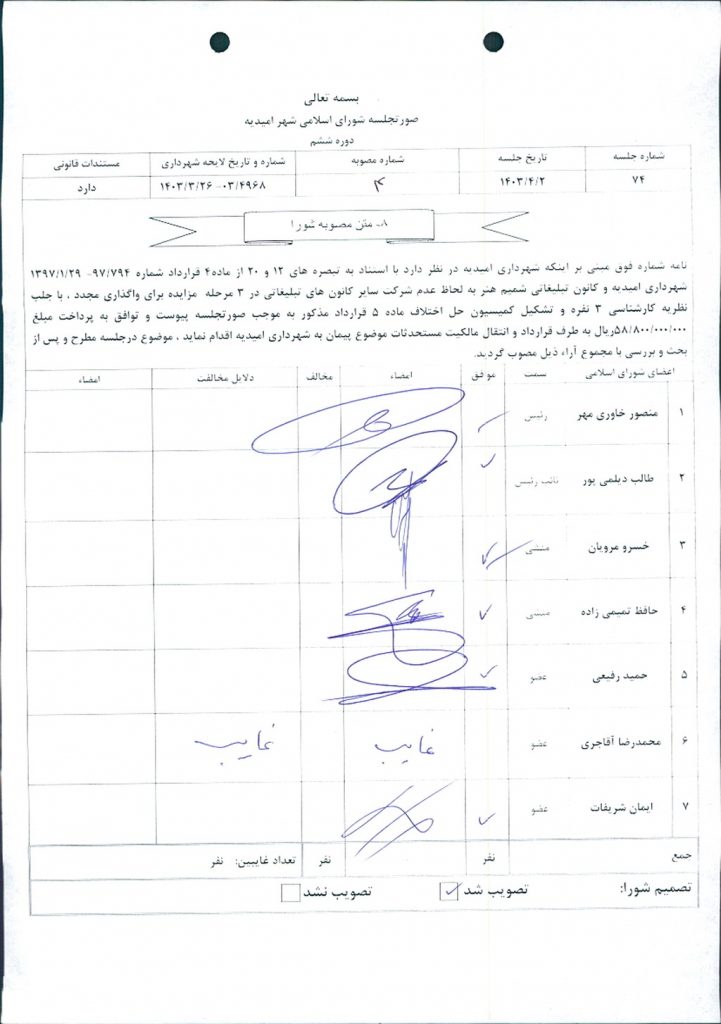 بسمه تعالی
صورتجلسه شورای اسلامی شهر امیدیه
دوره ششم
شماره جلسه تاریخ جلسه شماره مصوبه شماره و تاریخ لایحه شهرداری مستندات قانونی
۷۴ ۱۴۰۳/۴/۲ ۴ ۰۳/۴۹۶۸-۱۴۰۳/۳/۲۶ دارد
۸- متن مصوبه شورا
نامه شماره فوق مبنی بر اینکه شهرداری امیدیه در نظر دارد با استناد به تبصره های ۱۲ و ۲۰ از ماده۴ قرارداد شماره ۹۷/۷۹۴- ۱۳۹۷/۱/۲۹
شهرداری امیدیه و کانون تبلیغاتی شمیم هنر به لحاظ عدم شرکت سایر کانون های تبلیغاتی در ۳ مرحله مزایده برای واگذاری مجدد ، با جلب
نظریه کارشناسی ۳ نفره و تشکیل کمیسیون حل اختلاف ماده ۵ قرارداد مذکور به موجب صورتجلسه پیوست و توافق به پرداخت مبلغ
۵۸/۸۰۰/۰۰۰/۰۰۰ریال به طرف قرارداد و انتقال مالکیت مستحدثات موضوع پیمان به شهرداری امیدیه اقدام نماید ، موضوع درجلسه مطرح و پس از
بحث و بررسی با مجموع آراء ذیل مصوب گردید.
اعضای شورای اسلامی سمت موافق امضاء مخالف دلایل مخالفت امضاء
۱ منصور خاوری مهر رئیس
۲ طالب دیلمی پور نائب رئیس
۳ خسرو مرویان منشی
۴ حافظ تمیمی زاده منشی
۵ حمید رفیعی عضو
۶ محمدرضا آقاجری عضو غایب غایب
۷ ایمان شریفات عضو
جمع نفر نفر تعداد غایبین: نفر
تصمیم شورا: تصویب شد تصویب نشد